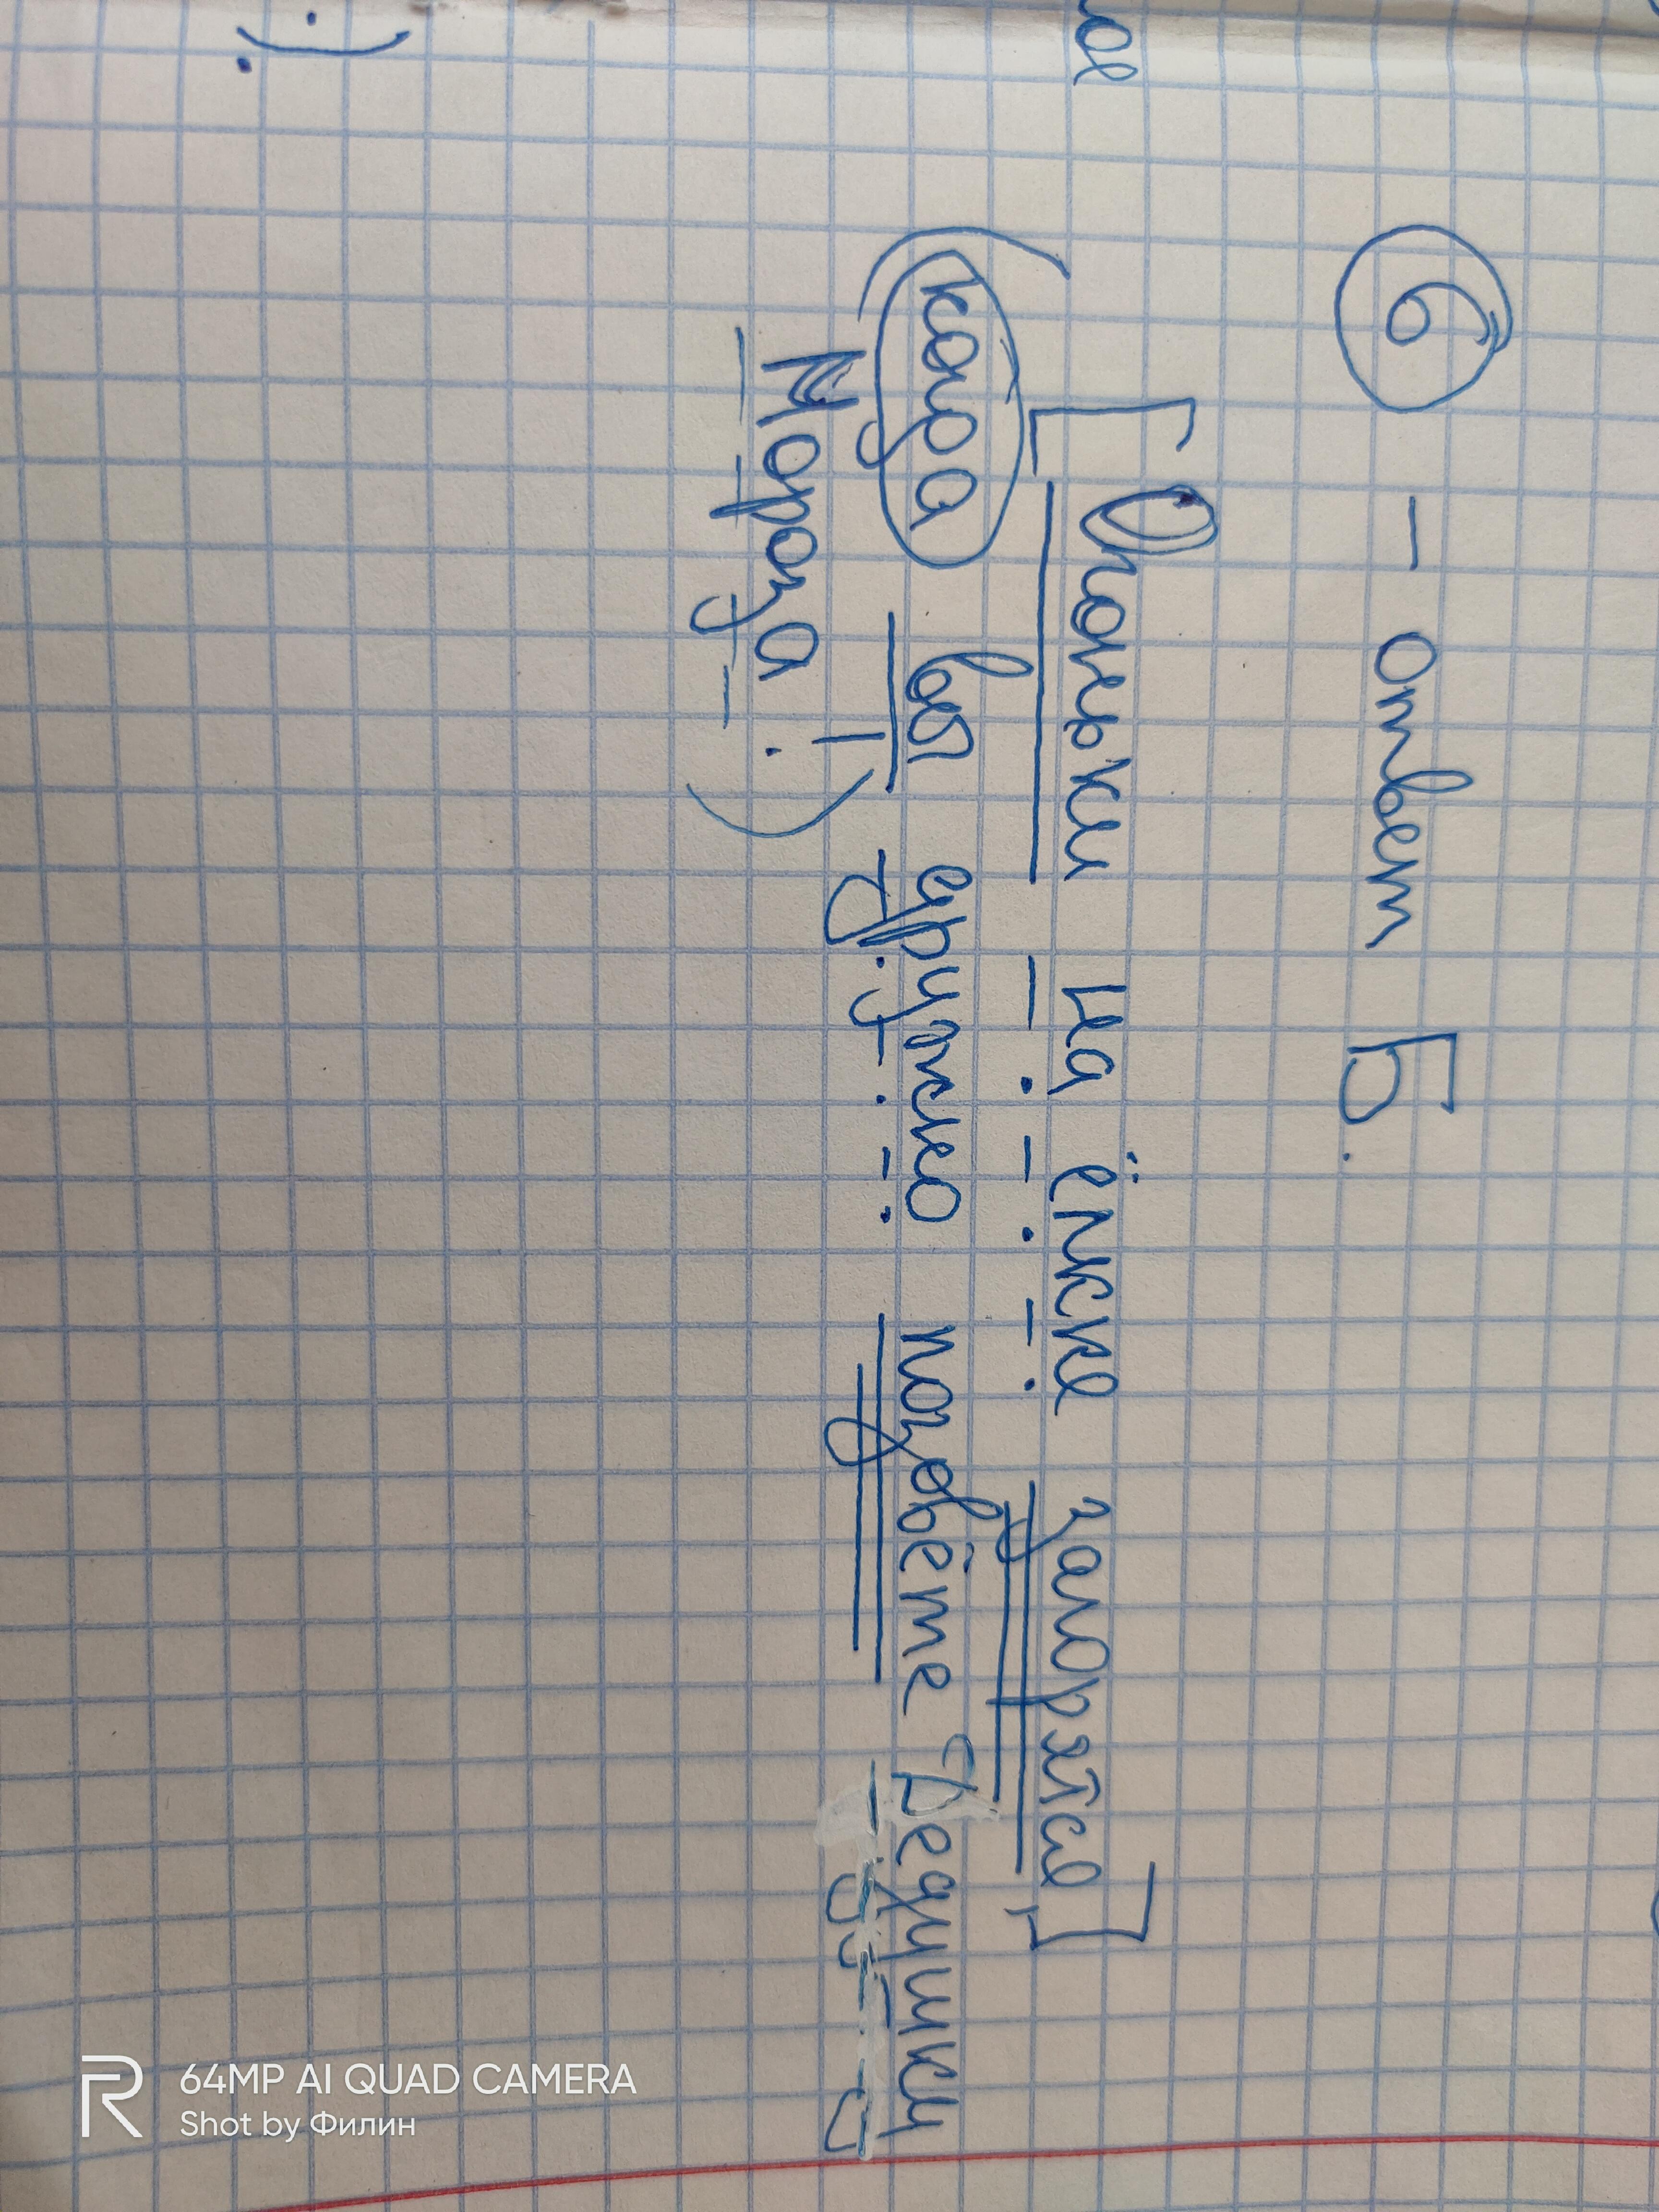 ое
6 - ответ Б.
[Огоньки на ёлке загорятся],
(когда вы дружно позовёте Дедушки
Мороза!)
64MP AI QUAD CAMERA
Shot by Филин